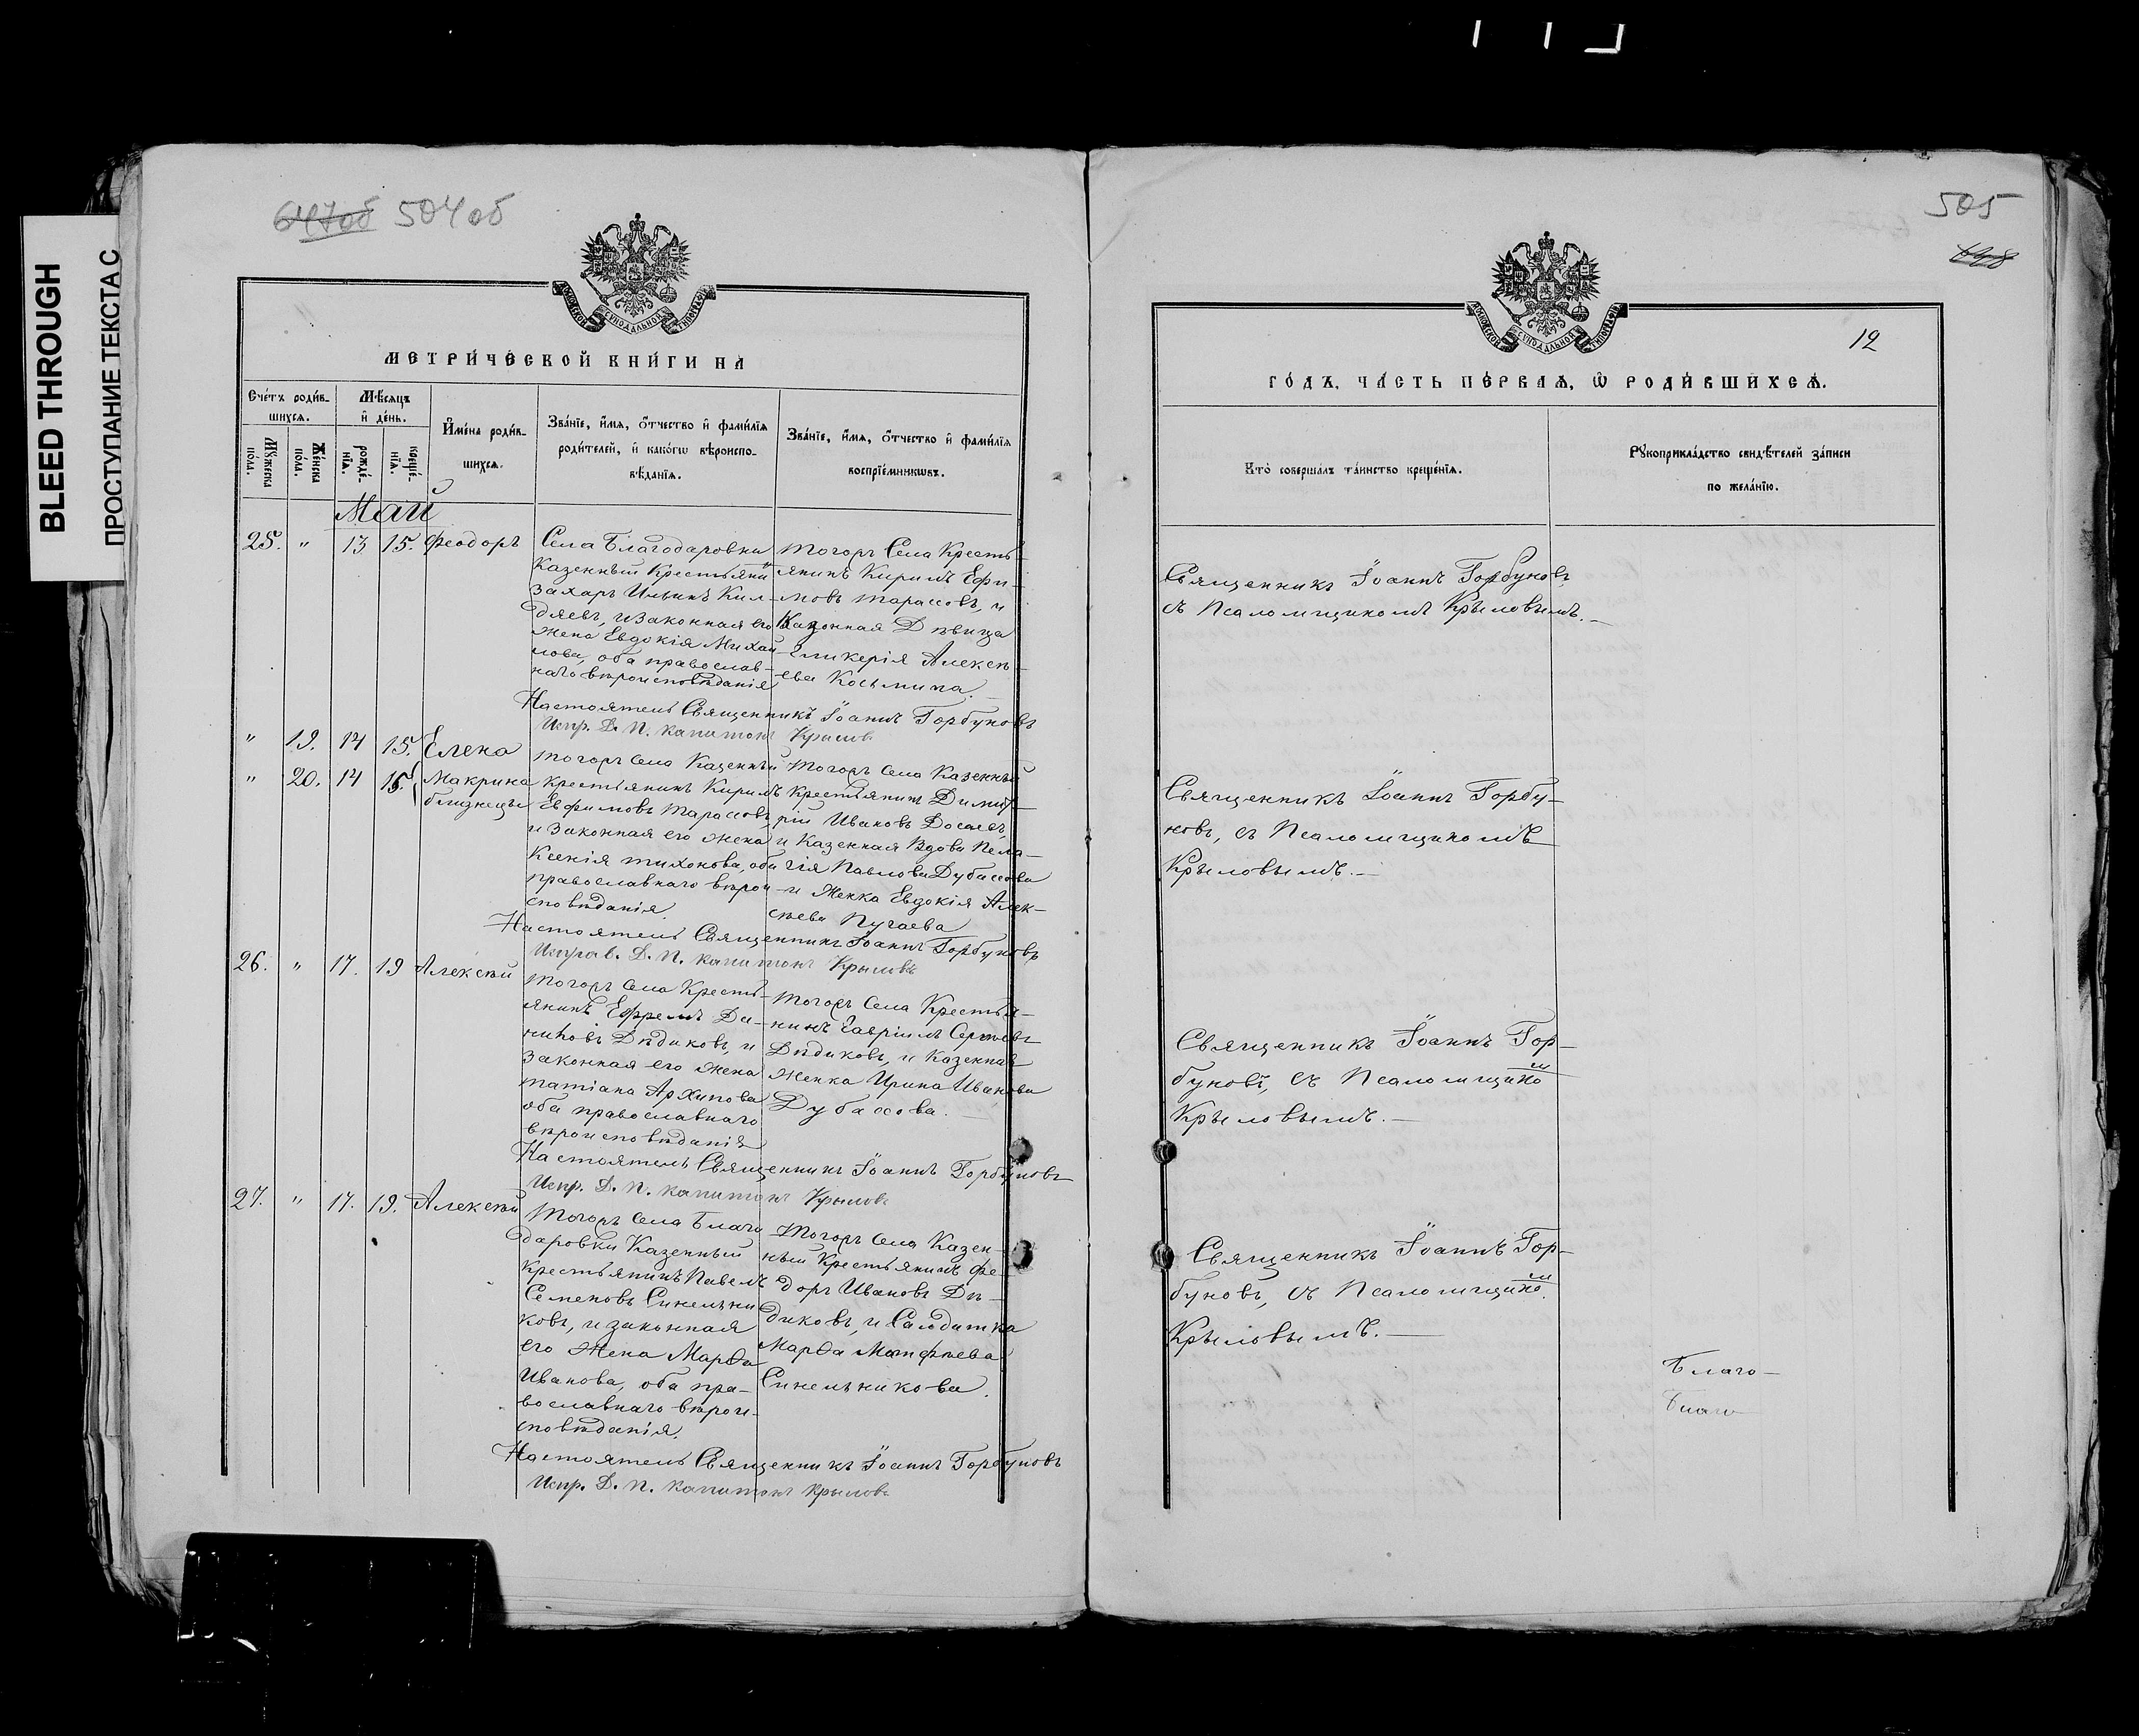 BLEED THROUGH
ПРОСТУПАНИЕ ТЕКСТА С
647об 504об
МОСКОВСКОЙ СУНОДАЛЬНОЙ ТИПОГРАФІИ
МЕТРИ́ЧЕСКОЙ КНИ́ГИ НА
Сче́тъ роди́в-
шихсѧ.
Мѣ́сѧцъ
и҆ де́нь.
И҆мена̀ роди́в-
шихсѧ.
Зва́нїе, и҆́мѧ, ѻ҆́тчество и҆ фами́лїѧ
роди́телей, и҆ како́гѡ вѣроиспо-
вѣ́данїѧ.
Зва́нїе, и҆́мѧ, ѻ҆́тчество и҆ фами́лїѧ
воспрїе́мникѡвъ.
Мꙋ́жеска
по́ла.
Же́нска
по́ла.
рожде́-
нїѧ.
креще́-
нїѧ.
Май
25. " 13 15. Феодоръ
Села Благодаровки
Казенный Крестьяни
Захаръ Ильинъ Кил-
дяевъ, и законная его
жена Евдокія Михай
лова, оба православ-
наго вѣроисповѣданія
тогоже Села Кресть-
янинъ Кирилъ Ефи-
мовъ Тарасовъ, и
Казенная Дѣвица
Гликерія Алексѣ-
ева Косьмина.
Настоятель Священникъ Іоаннъ Горбуновъ
Испр. Д. П. Капитонъ Крыловъ
" 19. 14 15. Елена
" 20. 14 15. Макрина
близнецы
тогоже Села Казенный
крестьянинъ Кирилъ
Евфимовъ Тарасовъ
и законная его жена
Ксенія Тихонова, оба
православнаго вѣрои-
сповѣданія.
Тогоже Села Казенный
крестьянинъ Димит-
рій Ивановъ Досаевъ,
и Казенная Вдова Пела-
гія Павлова Дубасова
и Женка Евдокія Алек-
сѣева Пугаева
Настоятель Священникъ Іоаннъ Горбуновъ
Исправ. Д. П. Капитонъ Крыловъ
26. " 17. 19 Алексѣй
Тогоже Села Кресть-
янинъ Ефремъ Де-
ниовъ Дѣдиковъ, и
законная его жена
Татіана Архипова
оба православнаго
вѣроисповѣданія
Тогоже Села Крестья-
нинъ Гавріилъ Сергѣевъ
Дѣдиковъ, и Казенная
Женка Ирина Иванова
Дубасова.
Настоятель Священникъ Іоаннъ Горбуновъ
Испр. Д. П. Капитонъ Крыловъ
27. " 17. 19. Алексѣй
Тогоже Села Благо
даровки Казенный
Крестьянинъ Павелъ
Семеновъ Синельни
ковъ, и законная
его Жена Марѳа
Иванова, оба пра-
вославнаго вѣрои-
сповѣданія.
Тогоже Села Казен-
ный Крестьянинъ Фе-
доръ Ивановъ Дѣ-
диковъ, и Салодатка
Марѳа Матфѣева
Синельникова.
Настоятель Священникъ Іоаннъ Горбуновъ
Испр. Д. П. Капитонъ Крыловъ
505
648
12
МОСКОВСКОЙ СУНОДАЛЬНОЙ ТИПОГРАФІИ
ГО́ДЪ, ЧА́СТЬ ПЕ́РВАѦ, Ѡ҆ РОДИ́ВШИХСѦ.
Кто̀ соверша́лъ та́инство креще́нїѧ.
Рꙋкоприкла́дство свидѣ́телей за́писи
по жела́нїю.
Священникъ Іоаннъ Горбуновъ,
съ Псаломщикомъ Крыловымъ.
Священникъ Іоаннъ Горбу-
новъ, съ Псаломщикомъ
Крыловымъ.
Священникъ Іоаннъ Гор-
буновъ, съ Псаломщикомъ
Крыловымъ.
Священникъ Іоаннъ Гор-
буновъ, съ Псаломщикомъ
Крыловымъ.
Благо-
Благо